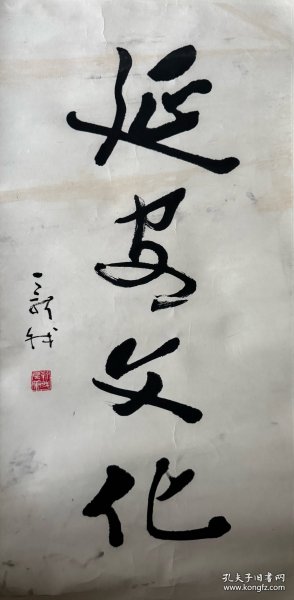 延安文化
孔夫子旧书网
www.kongfz.com